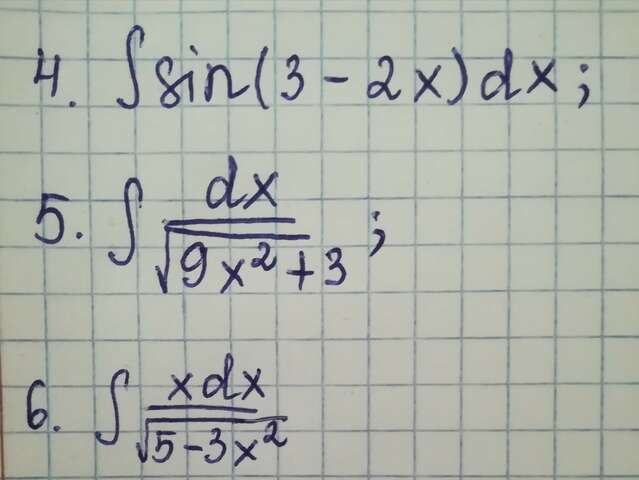 4. ∫ sin(3 - 2x)dx;
5. ∫ dx / √(9x² + 3);
6. ∫ xdx / √(5 - 3x²)